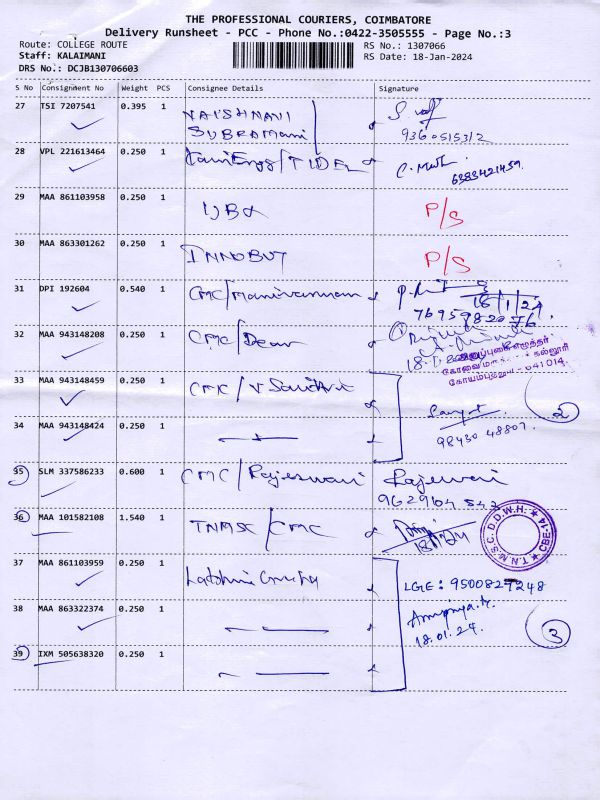 THE PROFESSIONAL COURIERS, COIMBATORE
Delivery Runsheet - PCC - Phone No.:0422-3505555 - Page No.:3
Route: COLLEGE ROUTE
RS No.: 1307066
Staff: KALAIMANI
RS Date: 18-Jan-2024
DRS No.: DCJB130706603
S No Consignment No Weight PCS Consignee Details Signature
27 TSI 7207541 0.395 1 VAISHNAVI
SUBRAMANI
9360515312
28 VPL 221613464 0.250 1 /TIDEL
6383421459
29 MAA 861103958 0.250 1 P/S
30 MAA 863301262 0.250 1 P/S
31 DPI 192604 0.540 1 CMC/Manivannan
18/1/24
7695982076
32 MAA 943148208 0.250 1 CMC/Dean
கோயம்புத்தூர் - 641014
33 MAA 943148459 0.250 1 CMC/
2
34 MAA 943148424 0.250 1
98430 48807
35 SLM 337586233 0.600 1 CMC/Rajeswari Rajeswari
9629104542
36 MAA 101582108 1.540 1 TNMSC/CMC
T.N.M.S.C. D.D.W.H. ★ CBE-14 ★
37 MAA 861103959 0.250 1
LGE: 9500827248
38 MAA 863322374 0.250 1
18.01.24.
3
39 IXM 505638320 0.250 1